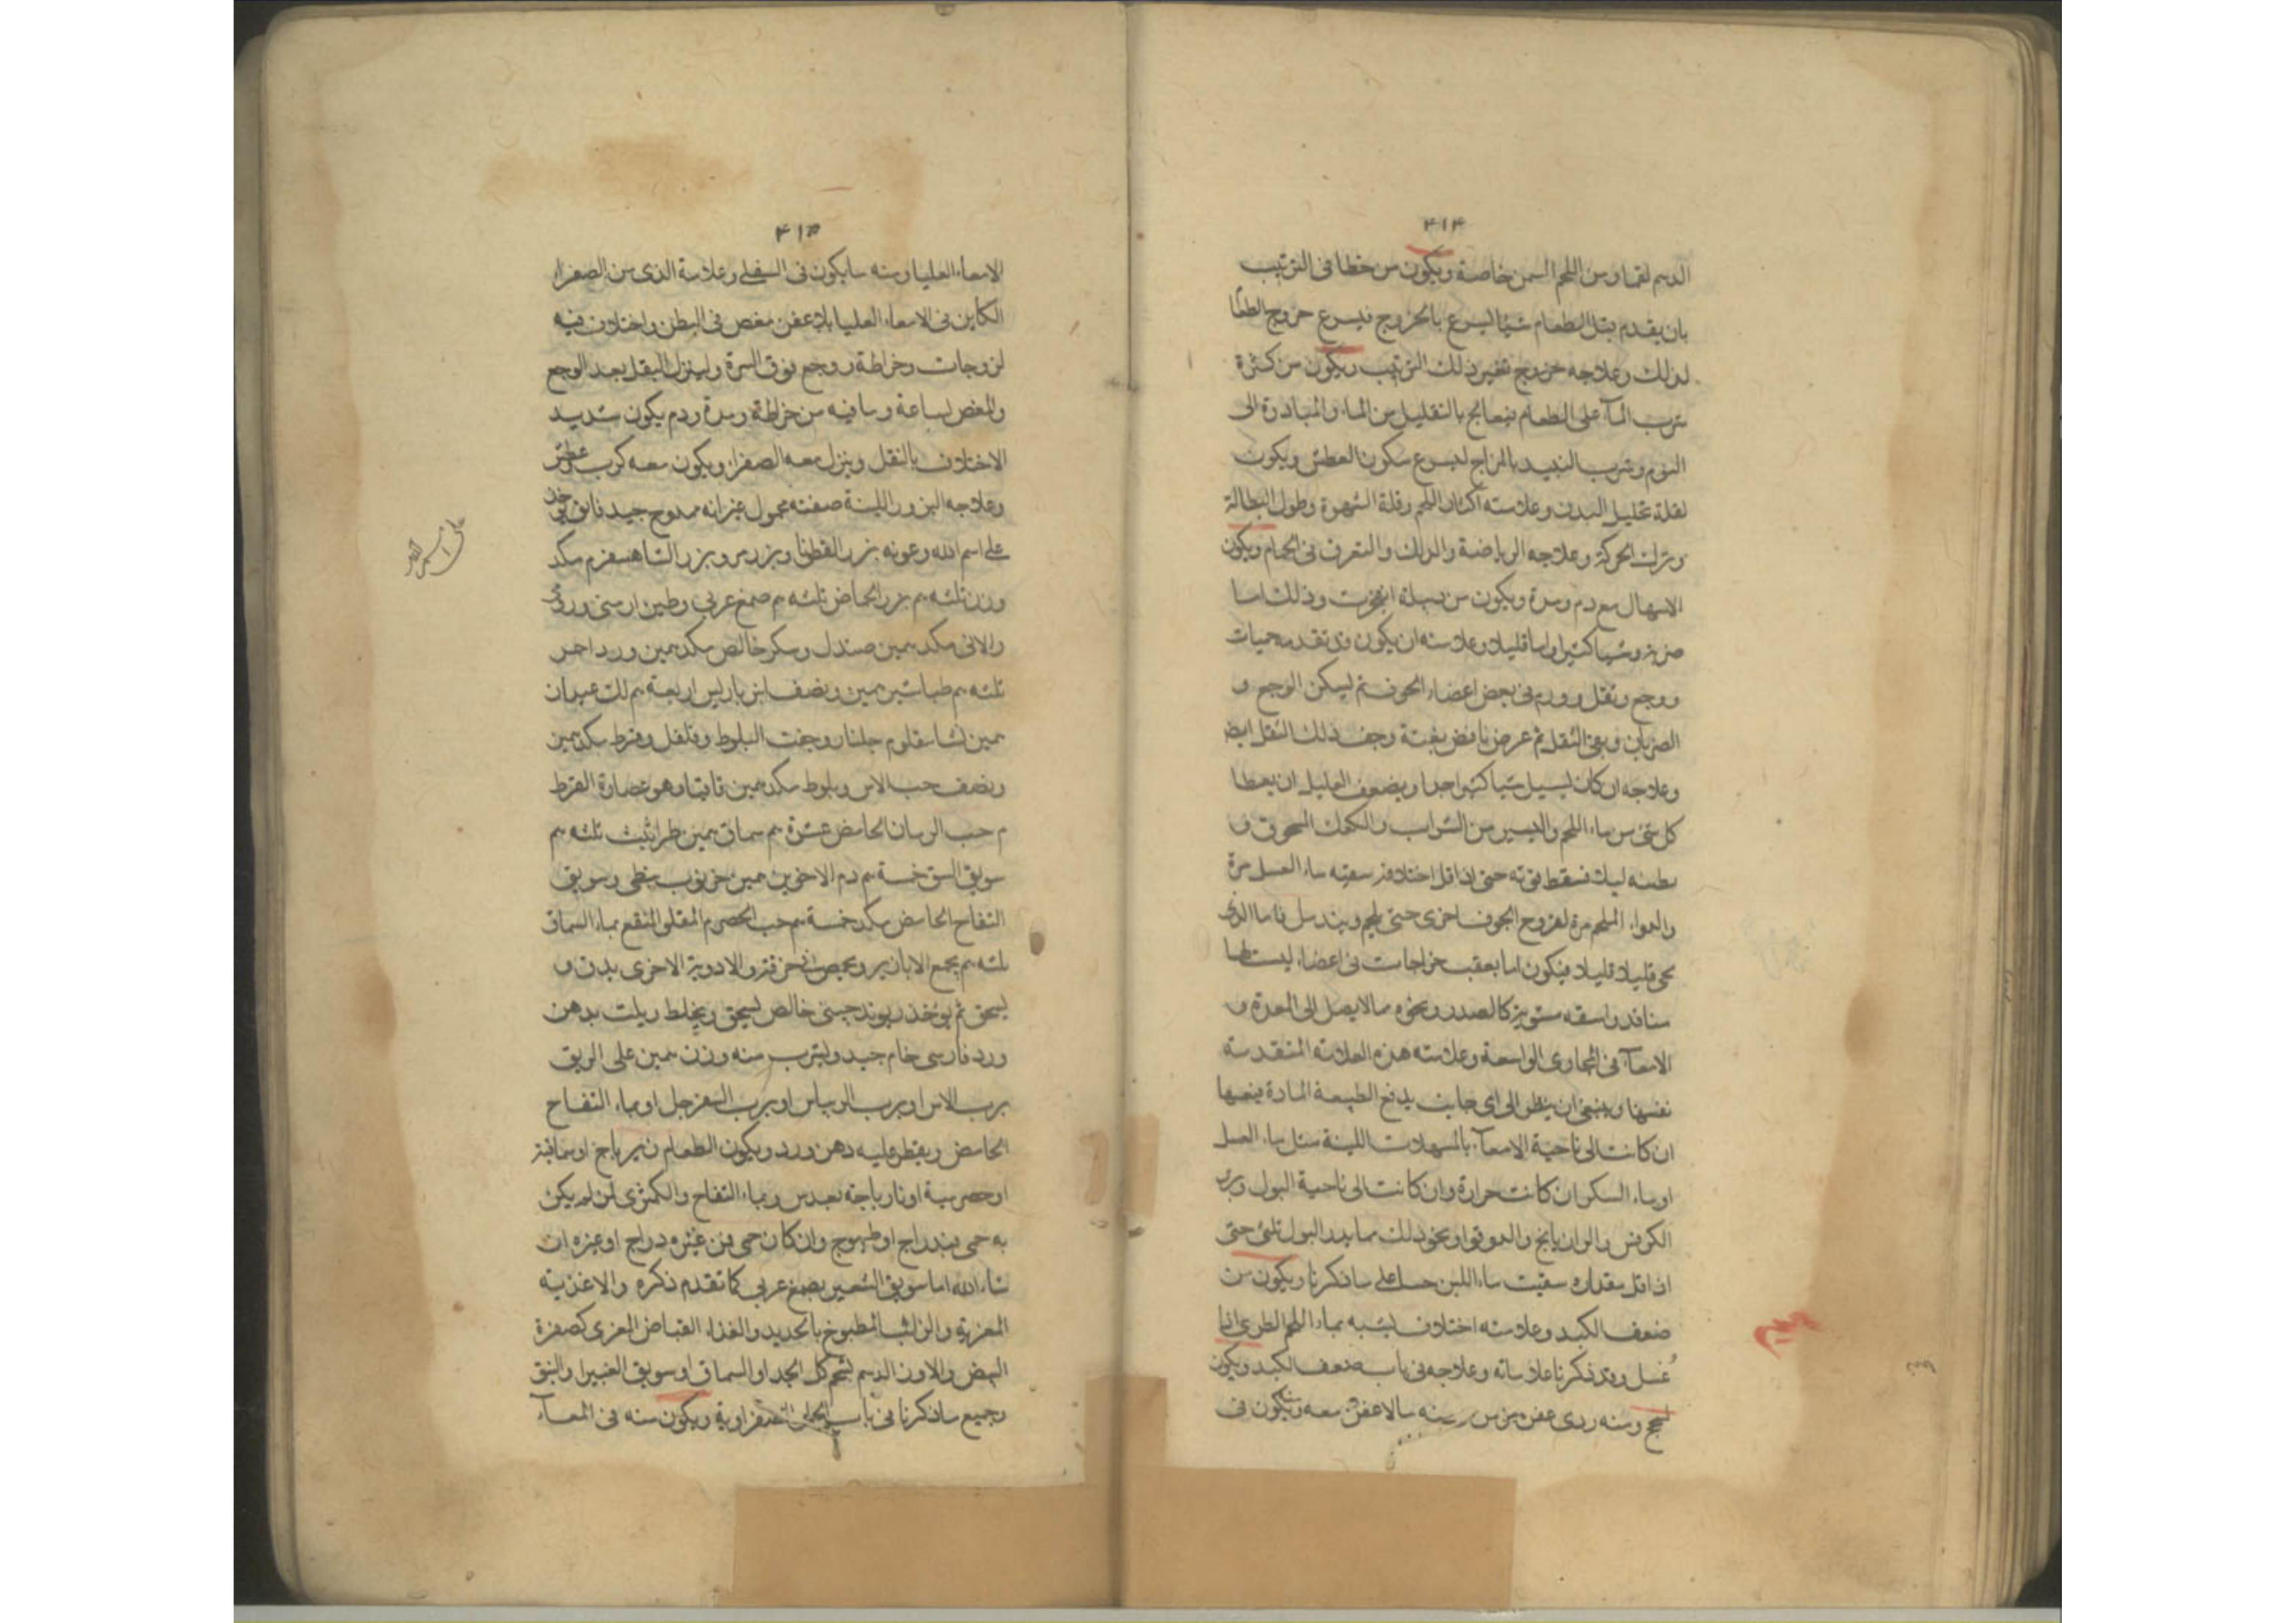 ۴۱۴
الدسم لقما ومن اللحم السمن خاصة ويكون من خطا فى الترتيب
بان يقدم قبل الطعام شيئا ليسرع بالخروج فيسرع خروج الطعا
لذلك وعلاجه خروج تغير ذلك الترتيب ويكون من كثرة
شرب المآ على الطعام فيعالج بالتقليل من الماء والمبادرة الى
النوم وشرب النبيذ بالمزاج ليسرع سكون العطش ويكون
لقلة تحليل البدن وعلامته اكثار اللحم وقلة الشهوة وطول البطالة
وترك الحركة وعلاجه الرياضة والدلك والتعرق فى الحمام ويكون
الاسهال مع دم ومدة ويكون من دبيلة انفجرت وذلك اما
ضربة وشيا كثيرا واما قليلا وعلامته ان يكون قد تقدمه حميات
ووجع وثقل وورم فى بعض اعضاء الجوف ثم ليسكن الوجع و
الضربان وبقى الثقل ثم عرض نافض بغتة وخف ذلك الثقل ايض
وعلاجه ان كان يسيل شيا كثيرا جدا ويضعف العليل ان يعطا
كل شئ من ماء اللحم واليسير من الشراب والكعك المحوق و
بطنه ليلا فسقط قوته حتى اذا قل اختلافه سقيته ماء العسل مرة
والدواء الملحم مرة لقروح الجوف اخرى حتى يلحم ويندمل فاما الذى
يجى قليلا قليلا فيكون اما بعقب خراجات فى اعضاء ليست لها
منافذ واسقه مستوية كالصدر ونحوه مالا يصل الى المعدة و
الامعآ فى المجارى الواسعة وعلامته هذه العلامة المتقدمة
نفسها وينبغى ان ينظر الى اى جانب يدفع الطبيعة المادة فيعنها
ان كانت الى ناحية الامعآ بالمسهلات اللينة مثل ماء العسل
او ماء السكر ان كانت حرارة وان كانت الى ناحية البول وبزر
الكرفس والرازيانج والدوقوا ونحو ذلك مما يدر البول تلئى حتى
اذا قل مقداره سقيت ماء اللبن حسا على ما ذكرنا ويكون من
ضعف الكبد وعلامته اختلاف يشبه بماء اللحم الطرى اذا
غسل وقد ذكرنا علاماته وعلاجه فى باب ضعف الكبد ويكون
سحج ومنه ردى عفن ومنه مالا عفن معه ويكون فى
۴۱۵
الامعاء العليا ومنه ما يكون فى السفلى وعلامة الذى من الصفراء
الكاين فى الامعاء العليا بلا عفن مغص فى البطن واختلاف فيه
لزوجات وخراطة ووجع فوق السرة ولينزل الثقل بعد الوجع
والمغص لساعة وما فيه من خراطة ومدة ودم يكون شديد
الاختلاف بالثقل وينزل معه الصفرا ويكون معه كرب عطش
وعلاجه البزور اللينة صفته معمول غير انه ممدوح جيد فايق
على اسم الله وعونه بزر القطونا وبزر مرو بزر الشاهسفرم مكد
وزن ثلثه م بزر الحماض ثلثه م صمغ عربى وطين ارمنى ورد
والاقى مكد مين صندل وسكر خالص مكد مين ورد احمر
ثلثه م طباشير مين ونصف انبرباريس اربعة م لك عيدان
مين نشا مقلوم جلنار وجفت البلوط وفلفل وقرط مكد مين
ونصف حب الاس وبلوط مكد مين قاقيا وهو عصارة القرظ
م حب الرمان الحامض عشرة م سماق مين طراثيث ثلثه م
سويق النبق خمسة م دم الاخوين مين خرنوب نبطى وسويق
التفاح الحامض مكد خمسة م حب الحصرم المقلو المنقع بماء السماق
ثلثه م يجمع الابازير ويحمص فى خزفة والادوية الاخرى يدق و
يسحق ثم يوخذ ريوند جينى خالص ليسحق ويخلط ويلت بدهن
ورد فارسى خام جيد وليشرب منه وزن مين على الريق
برب الاس او برب الريباس او برب السفرجل او بماء التفاح
الحامض ويقطر عليه دهن ورد ويكون الطعام زيرباج او سماقية
او حصرمية او نارباجة بعدس وبماء التفاح والكمثرى ان لم يكن
به حمى بدراج او طيهوج وان كان حمى فمن غيره دراج او غيره ان
شاء الله اما سويق الشعير بصمغ عربى كما تقدم ذكره والاغذية
المغرية والرائب المطبوخ بالحديد والغذاء القباض المغرى كصفرة
البيض والارز الدسم بشحم كلى الجدا والسماق وسويق الغبيرا والنبق
وجميع ما ذكرنا فى باب الصفراوية ويكون منه فى المعآ